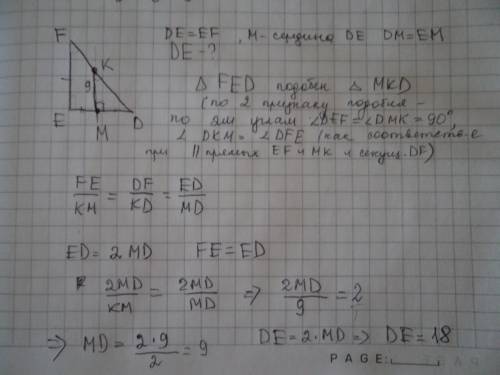 DE=EF, М-середина DE DM=EM
DE-?
F
K
9
E
M
D
△ FED подобен △ MKD
(по 2 признаку подобия -
по 2м углам ∠DEF=∠DMK=90°,
∠ DKM = ∠DFE (как соответств-е
при || прямых EF и MK и секущ. DF)
FE/KM = DF/KD = ED/MD
ED = 2MD FE=ED
2MD/KM = 2MD/MD ⇒ 2MD/9 = 2
⇒ MD = 2·9/2 = 9 DE=2·MD ⇒ DE=18
PAGE: